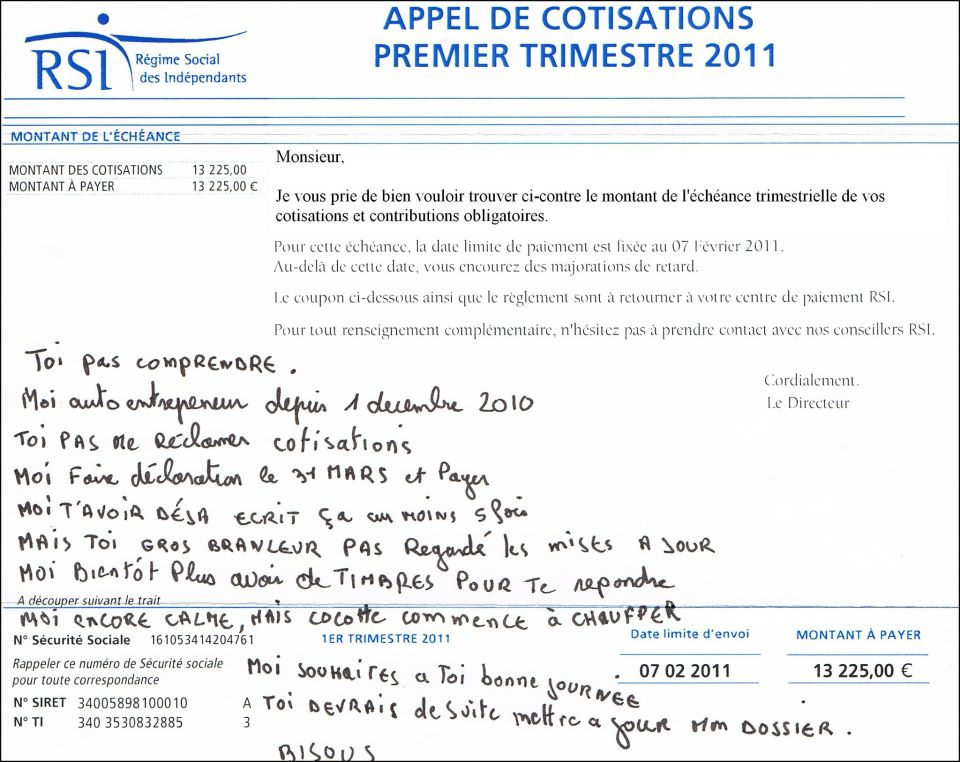 APPEL DE COTISATIONS
PREMIER TRIMESTRE 2011
RSI
Régime Social
des Indépendants
MONTANT DE L'ÉCHÉANCE
MONTANT DES COTISATIONS 13 225,00
MONTANT À PAYER 13 225,00 €
Monsieur,
Je vous prie de bien vouloir trouver ci-contre le montant de l'échéance trimestrielle de vos
cotisations et contributions obligatoires.
Pour cette échéance, la date limite de paiement est fixée au 07 Février 2011.
Au-delà de cette date, vous encourez des majorations de retard.
Le coupon ci-dessous ainsi que le règlement sont à retourner à votre centre de paiement RSI.
Pour tout renseignement complémentaire, n'hésitez pas à prendre contact avec nos conseillers RSI.
Cordialement.
Le Directeur
Toi pas COMPRENDRE.
Moi auto entrepeneur depuis 1 decembre 2010
Toi PAS Me Réclamer cotisations
Moi Faire déclaration le 31 MARS et Payer
MOI T'AVOIR DÉJA ECRIT ça au MOINS 5 fois
MAIS TOI GROS BRANLEUR PAS Regardé les mises A JOUR
MOI Bientôt Plus avoir de TIMBRES POUR Te repondre
A découper suivant le trait
MOI ENCORE CALME, MAIS COCOTTE commence à CHAUFFER
N° Sécurité Sociale 161053414204761
1ER TRIMESTRE 2011
Date limite d'envoi
MONTANT À PAYER
07 02 2011
13 225,00 €
Rappeler ce numéro de Sécurité sociale
pour toute correspondance
N° SIRET 34005898100010 A
N° TI 340 3530832885 3
Moi SOUHAITES a Toi bonne JOURNEE
Toi DEVRAIS de Suite mettre a jour Mm DOSSIER.
BISOUS